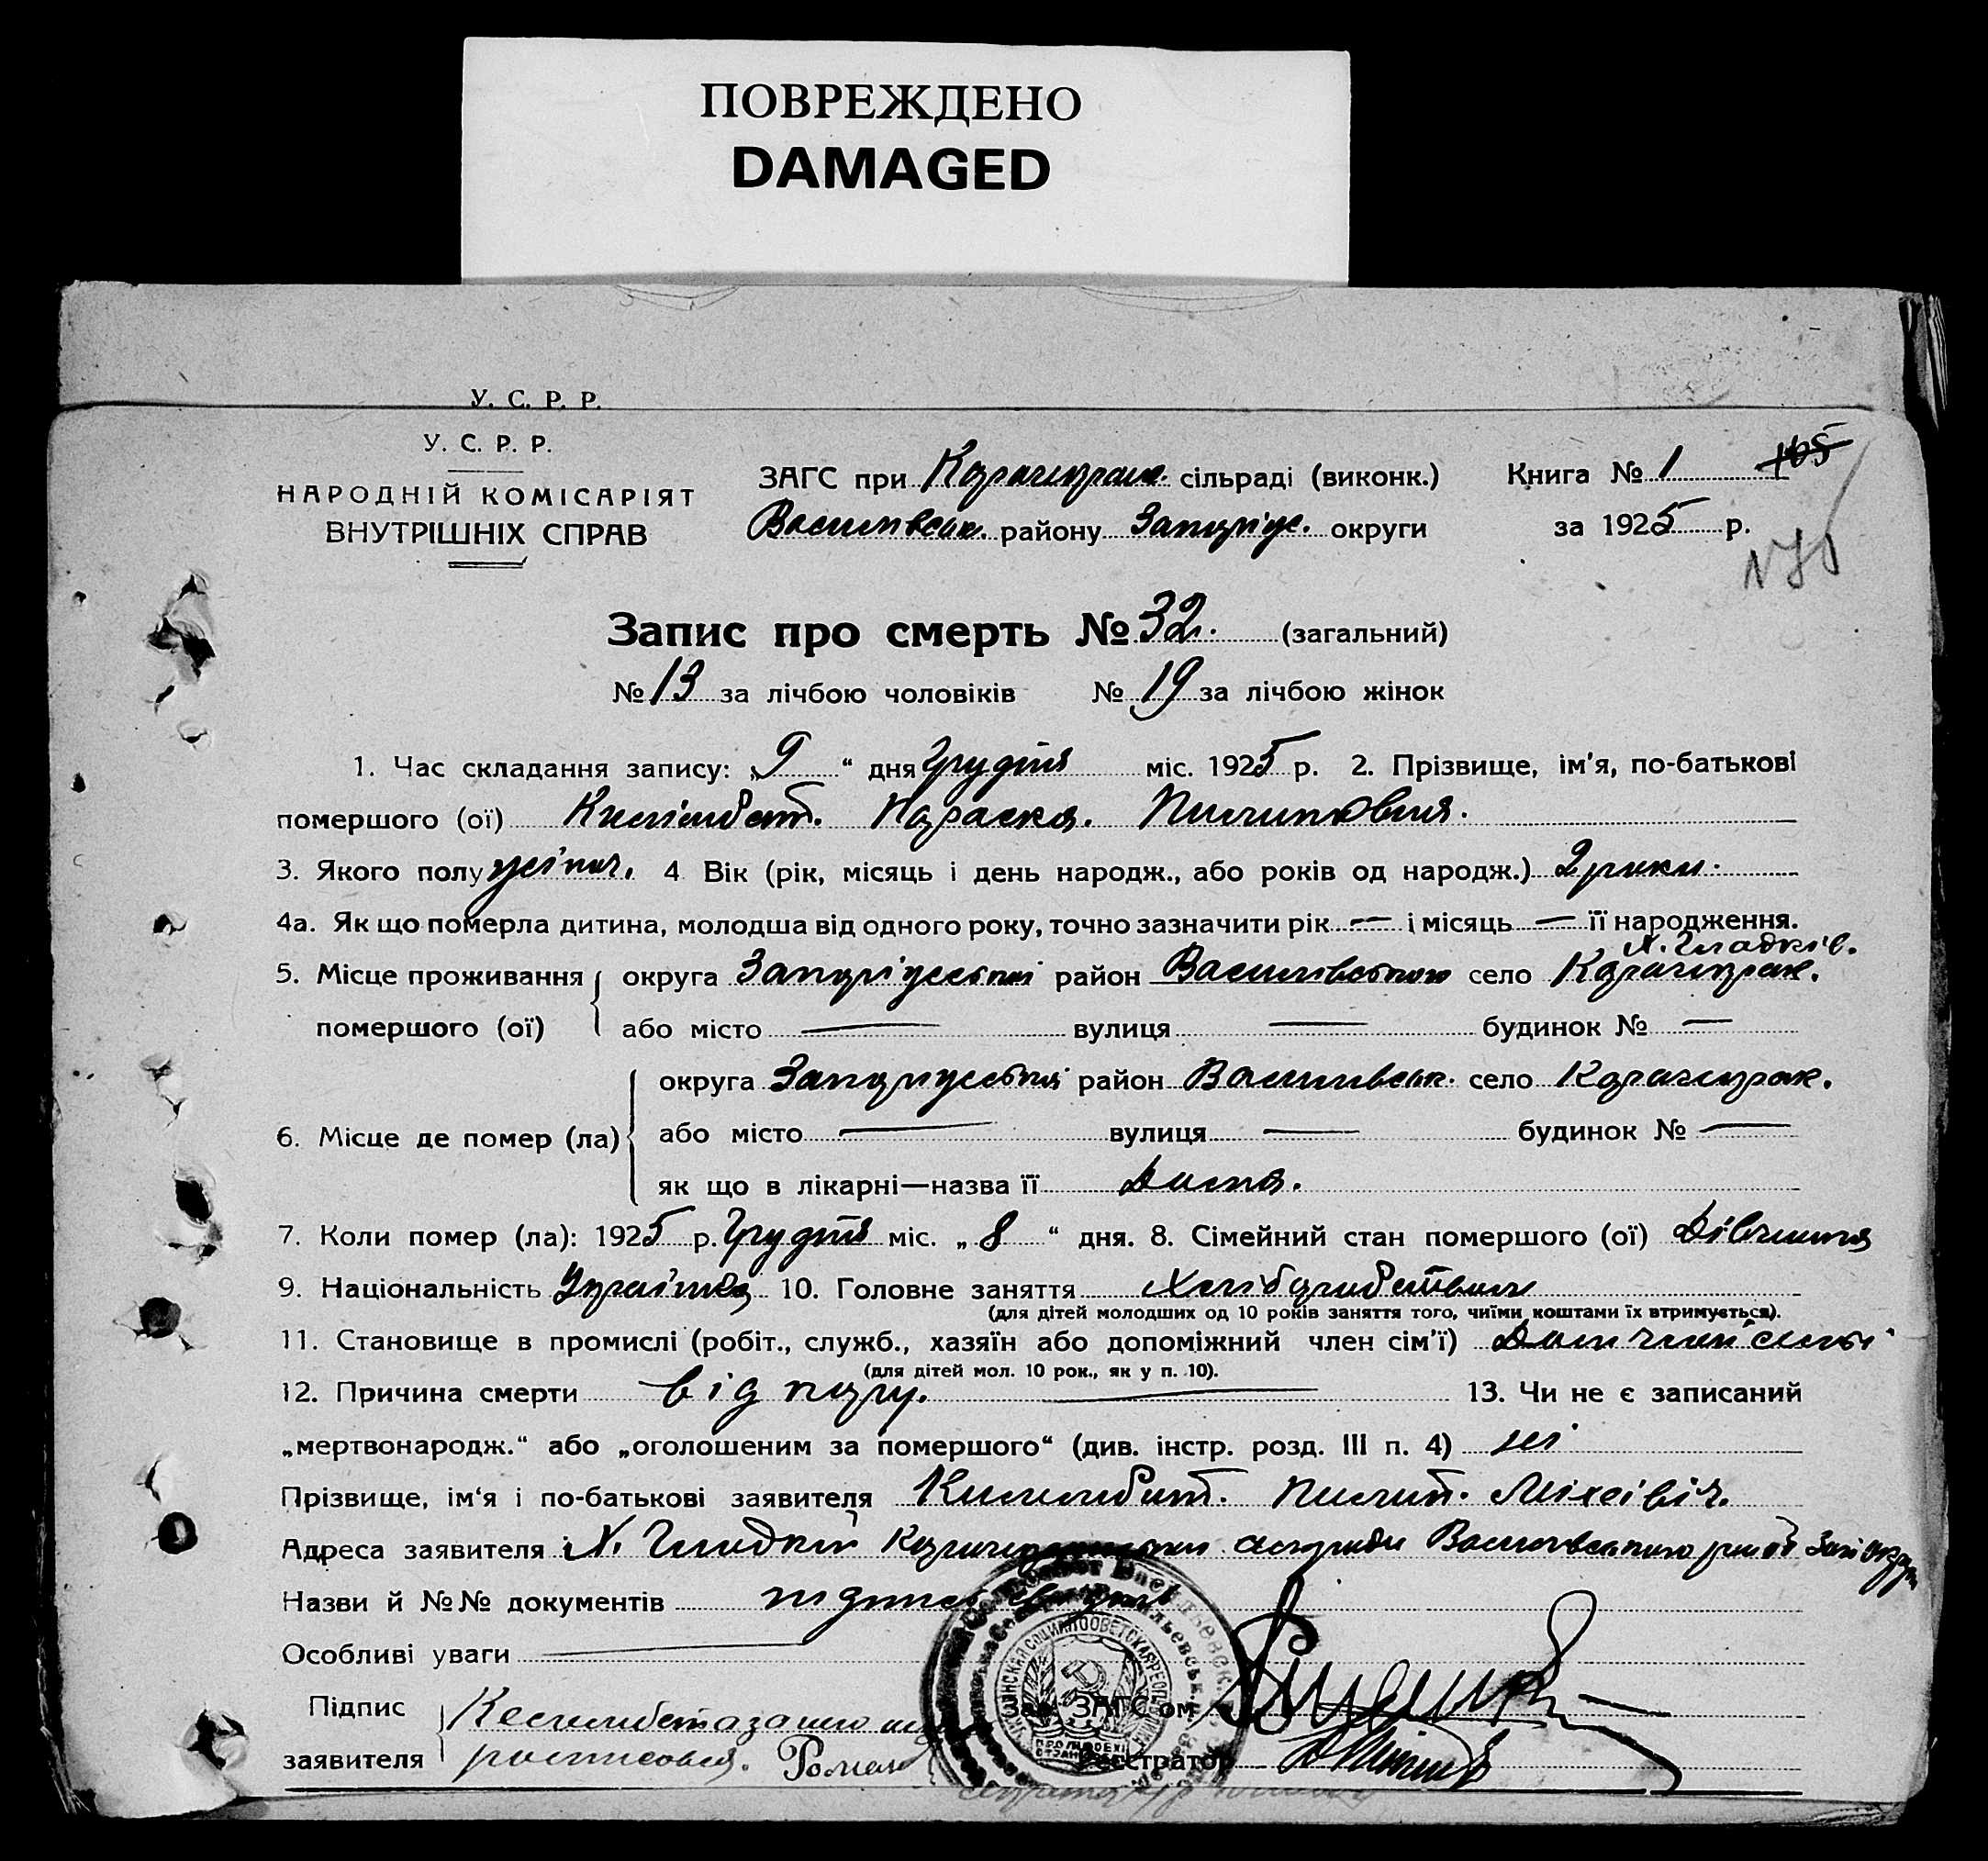 ПОВРЕЖДЕНО
DAMAGED
У. С. Р. Р.
У. С. Р. Р.
НАРОДНІЙ КОМІСАРІЯТ
ВНУТРІШНІХ СПРАВ
ЗАГС при Карачекрак. сільраді (виконк.) Книга № 1 105
Василівськ. району Запоріж. округи за 1925 р.
Запис про смерть № 32. (загальний)
№ 13 за лічбою чоловіків № 19 за лічбою жінок
1. Час складання запису: „ 9 “ дня Грудня міс. 1925 р. 2. Прізвище, ім'я, по-батькові
помершого (ої) Параска. Пилиповна.
3. Якого полу жіноч. 4 Вік (рік, місяць і день народж., або років од народж.) 2 роки.
4а. Як що померла дитина, молодша від одного року, точно зазначити рік — і місяць — її народження.
Х. Гладків.
5. Місце проживання округа Запоріжської район Василівського село Карачекрак.
помершого (ої) або місто — вулиця — будинок № —
округа Запоріжської район Василівськ. село Карачекрак.
6. Місце де помер (ла) або місто — вулиця — будинок № —
як що в лікарні—назва її Дома.
7. Коли помер (ла): 1925 р. Грудня міс. „ 8 “ дня. 8. Сімейний стан помершого (ої) Дівчина
9. Національність Українка 10. Головне заняття Хліборобством
(для дітей молодших од 10 років заняття того, чиїми коштами їх втримується).
11. Становище в промислі (робіт., служб., хазяїн або допоміжний член сім'ї) Доп член сімї
(для дітей мол. 10 рок., як у п. 10).
12. Причина смерти від жару. 13. Чи не є записаний
„мертвонародж.“ або „оголошеним за помершого“ (див. інстр. розд. III п. 4) ні
Прізвище, ім'я і по-батькові заявителя Пилип. Міхеівіч.
Адреса заявителя Х. Гладкий Карачекракської сільради Василівського район Зап округ
Назви й №№ документів
Особливі уваги
Підпис
заявителя росписовся. Роман
Зав. ЗАГС'ом
Реєстратор